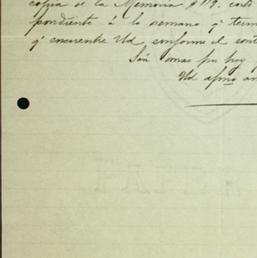 copia de la Memoria Nº 19. corres
pondiente á la semana qe term
qe encuentre Ud conforme el cont
Sin mas pr hoy
Ud afmo am